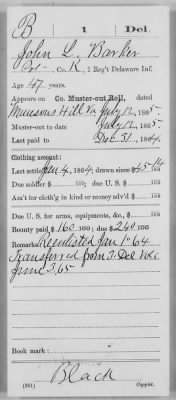 B 1 Del.
John L. Barker
Co. K, 1 Reg't Delaware Inf.
Age 47 years.
Appears on Co. Muster-out Roll, dated
Munsons Hill Va July 12, 1865.
Muster-out to date July 12, 1865.
Last paid to Dec 31, 1864.
Clothing account:
Last settled Jan 4, 1864; drawn since $ 25 14/100
Due soldier $ 100; due U. S. $ 100
Am't for cloth'g in kind or money adv'd $ 100
Due U. S. for arms, equipments, &c., $ 100
Bounty paid $ 160 100; due $ 240 100
Remarks: Reenlisted Jan 1" 64
Transferred from 3. Del Vols
June 3, 65
Book mark:
(361) Black
Copyist.